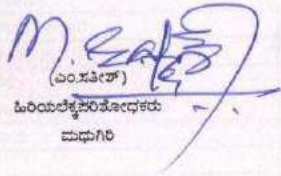 (ಎಂ.ಸತೀಶ್)
ಹಿರಿಯಲೆಕ್ಕಪರಿಶೋಧಕರು
ಮಧುಗಿರಿ